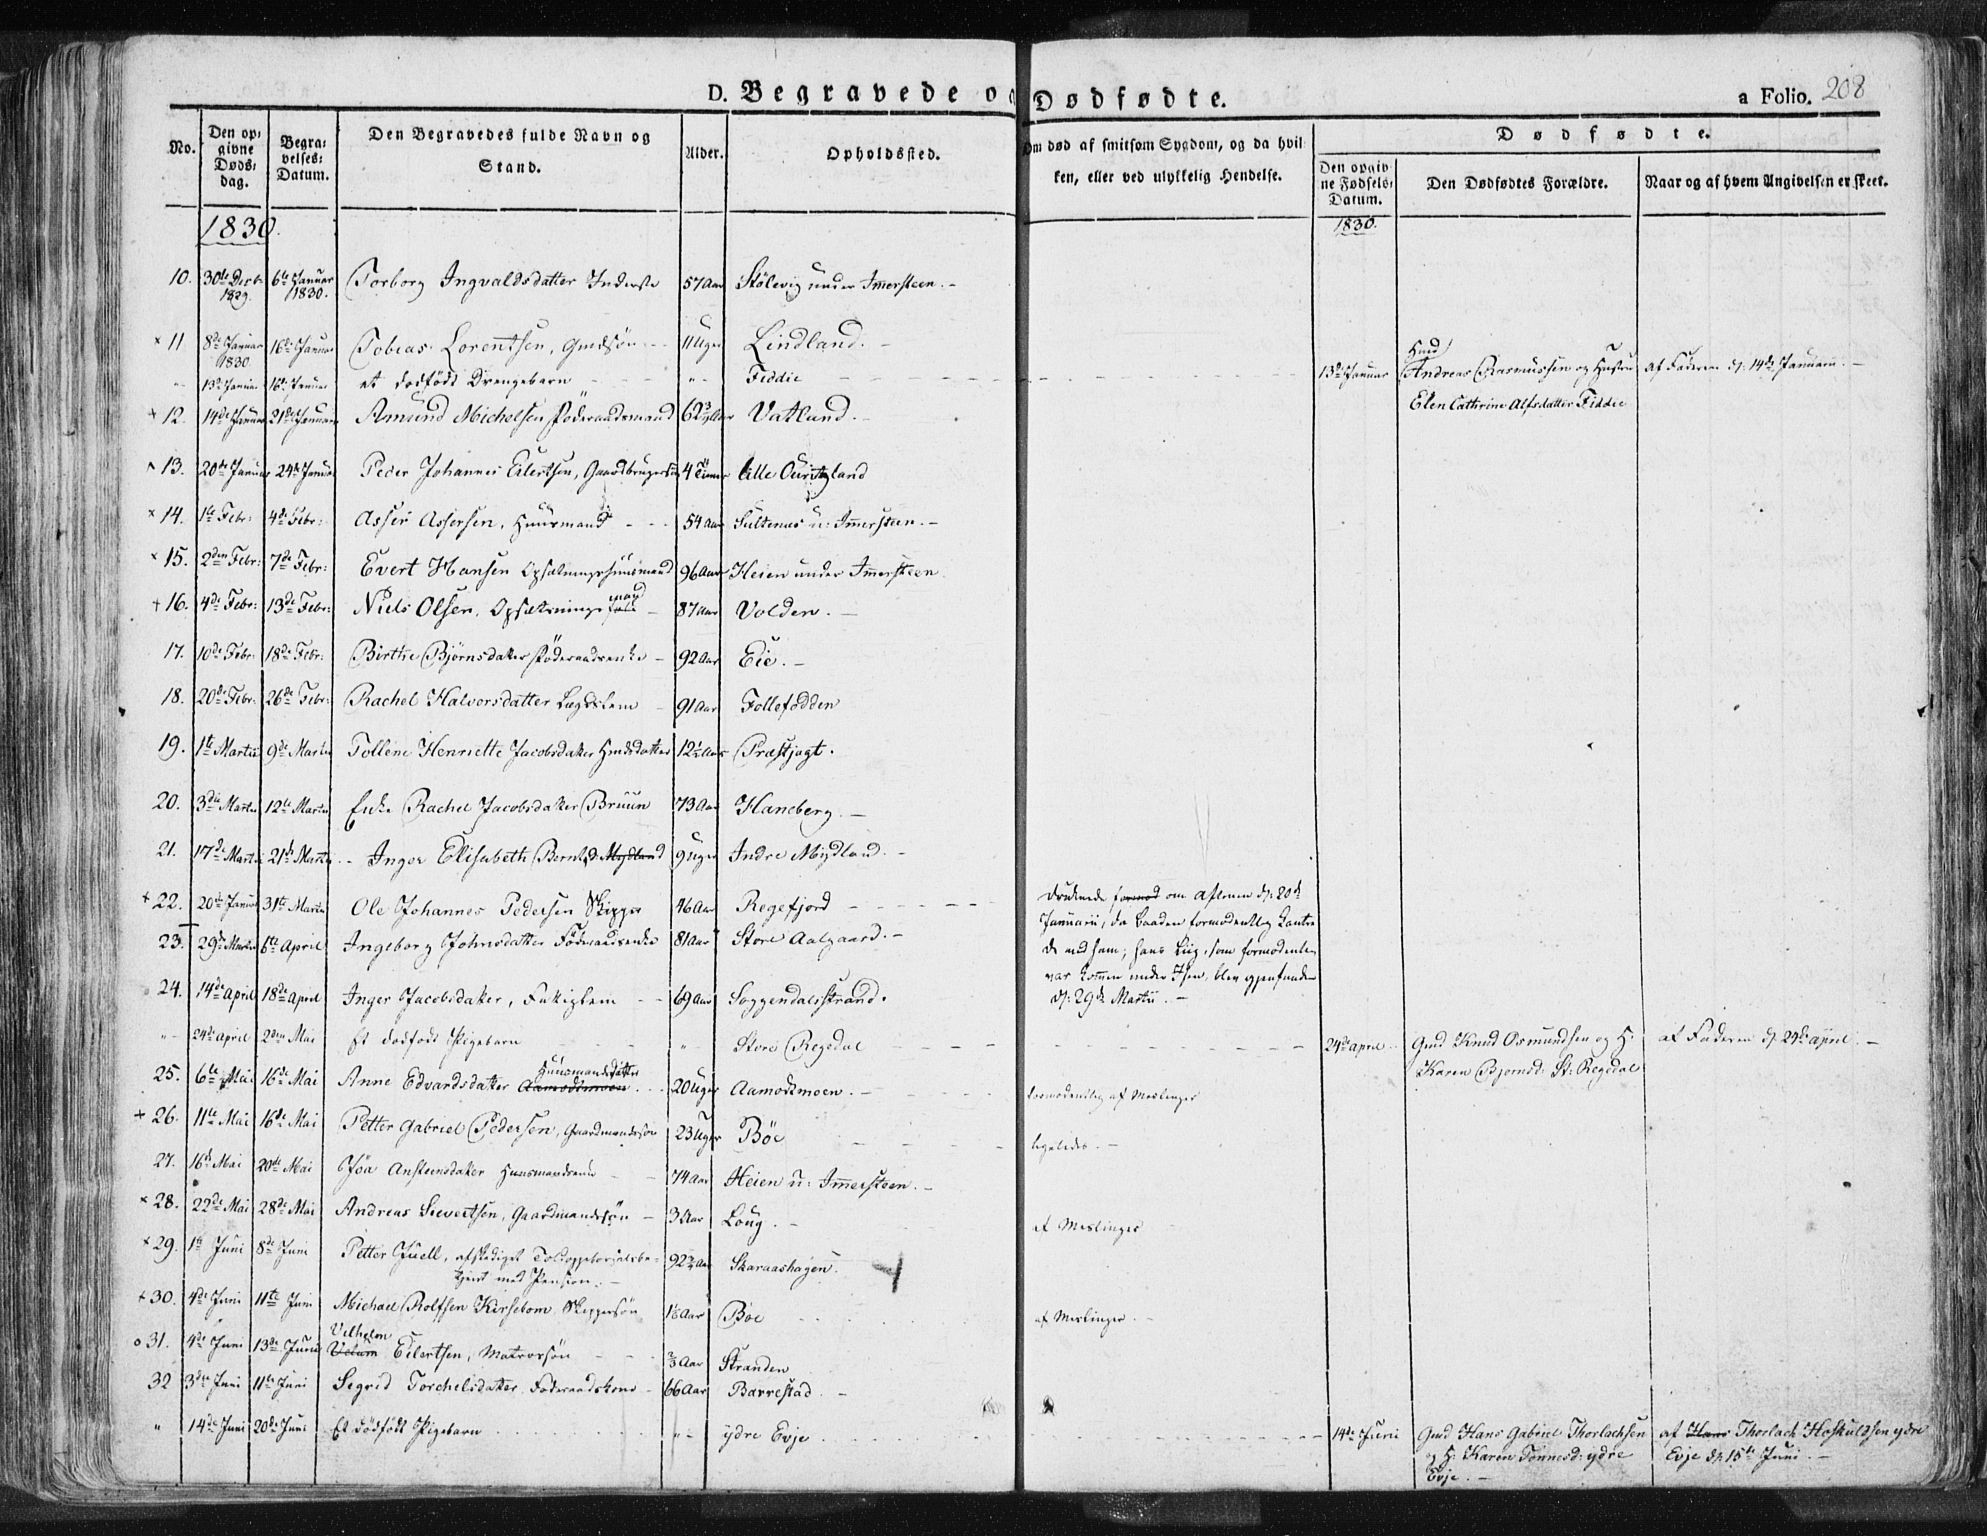 D. Begravede og Dødfødte.
a Folio. 208
No.
Den opgivne Dødsdag.
Begravelses Datum.
Den Begravedes fulde Navn og Stand.
Alder.
Opholdssted.
Om død af smitsom Sygdom, og da hvilken, eller ved ulykkelig Hendelse.
Dødfødte.
Den opgivne Fødsels Datum.
Den Dødfødtes Forældre.
Naar og af hvem Angivelsen er skeet.
1830.
1830.
10. 30te Decbr 1829. 6te Januar 1830. Torborg Ingvaldsdatter Inderste 57 Aar Stølevig under Immersteen.
11 8de Januar 1830 16de Januar Tobias Lorentsen, Gmdsøn 11 Uger Lindland.
13de Januar 16de Januar et dødfødt Drengebarn Fiddie 13de Januar Gmd Andreas Rasmussen og Hustru af Faderen d: 14de Januarii.
Elen Cathrine Alfsdatter Fiddie
12. 14de Januar 21de Januar Amund Michelsen Föderaadsmand 62 Aar Vatland.
13. 20de Januar 24de Januar Peder Johannes Eilertsen, Gaardbrugersön 4 Timer Lille
14. 1te Febr: 4de Febr: Asser Assersen, Huusmand 54 Aar Sultenas u: Immersteen.
15. 2den Febr: 7de Febr: Evert Hansen Opsætningshuusmand 96 Aar Heien under Immersteen.
16. 4de Febr: 13de Febr: Niels Olsen, Opsætningsmand 87 Aar Volden.
17. 10de Febr: 18de Febr: Birthe Bjørnsdatter Föderaadsenke 92 Aar Eie.
18. 20de Febr: 26de Febr: Rachel Halvorsdatter Lægdslem 91 Aar Follefødden
19. 1te Martii 9de Martii Tollene Henriette Jacobsdatter Gmdsdatter 12½ Aar Præstjagt.
20. 3die Martii 12te Martii Enke Rachel Jacobsdatter Bruun 73 Aar Haneberg.
21. 17de Martii 21de Martii Inger Elisabeth Berntsd: Mydland 9 Uger Indre Mydland.
22. 20de Januar 31te Martii Ole Johannes Pedersen Skipper 46 Aar Regefjord druknede formod om Aftenen d: 20de
Januarii, da Baaden formodentlig kantre
23. 29de Martii 6te April Ingeborg Johnsdatter Föderaadsenke 81 Aar Store Aalgaard. de med ham; hans Liig, som formodentlig
var kommen under Isen, blev gjenfunden
24. 14de April 18de April Inger Jacobsdatter, Fattiglem 69 Aar Soggendalsstrand. d: 29de Martii.
24de April 2den Mai Et dødfødt Pigebarn Store Regedal 24de April Gmd Knud Osmundsen og H. af Faderen d: 24de April.
Karen Bjørnsd: St: Regedal
25. 6te Mai 16de Mai Anne Edvardsdatter Aamodtmoen Huusmandsdatter 20 Uger Aamodtmoen. formodentlig af Meslinger
26. 11te Mai 16de Mai Petter Gabriel Pedersen, Gaardmandssøn 23 Uger Böe ligeledes.
27. 16de Mai 20de Mai Joa Ansteensdatter Huusmandsenke 74 Aar Heien u: Immersteen.
28. 22de Mai 28de Mai Andreas Sievertsen, Gaardmandssön 3 Aar Loug. af Meslinger
29. 1te Juni 8de Juni Petter Juell, afskediget Toldoppebørselsbetjent med Pension. 92 Aar Skaraashagen.
30. 4de Juni 11te Juni Michael Rolfsen Kirsebom, Skippersön Aar Böe af Meslinger.
31. 4de Juni 13de Juni Vilhelm Eilertsen, Matrossön Aar Stranden
32 3die Juni 11te Juni Segrid Torchelsdatter, Föderaadskone 66 Aar Barrestad.
14de Juni 20de Juni Et dødfødt Pigebarn ydre Evje 14de Juni Gmd Hans Gabriel Thorlachsen af Hans Thorlach Hoskuldsen ydre
og H: Karen Tønnesd: ydre Evje d: 15te Juni.
Evje.